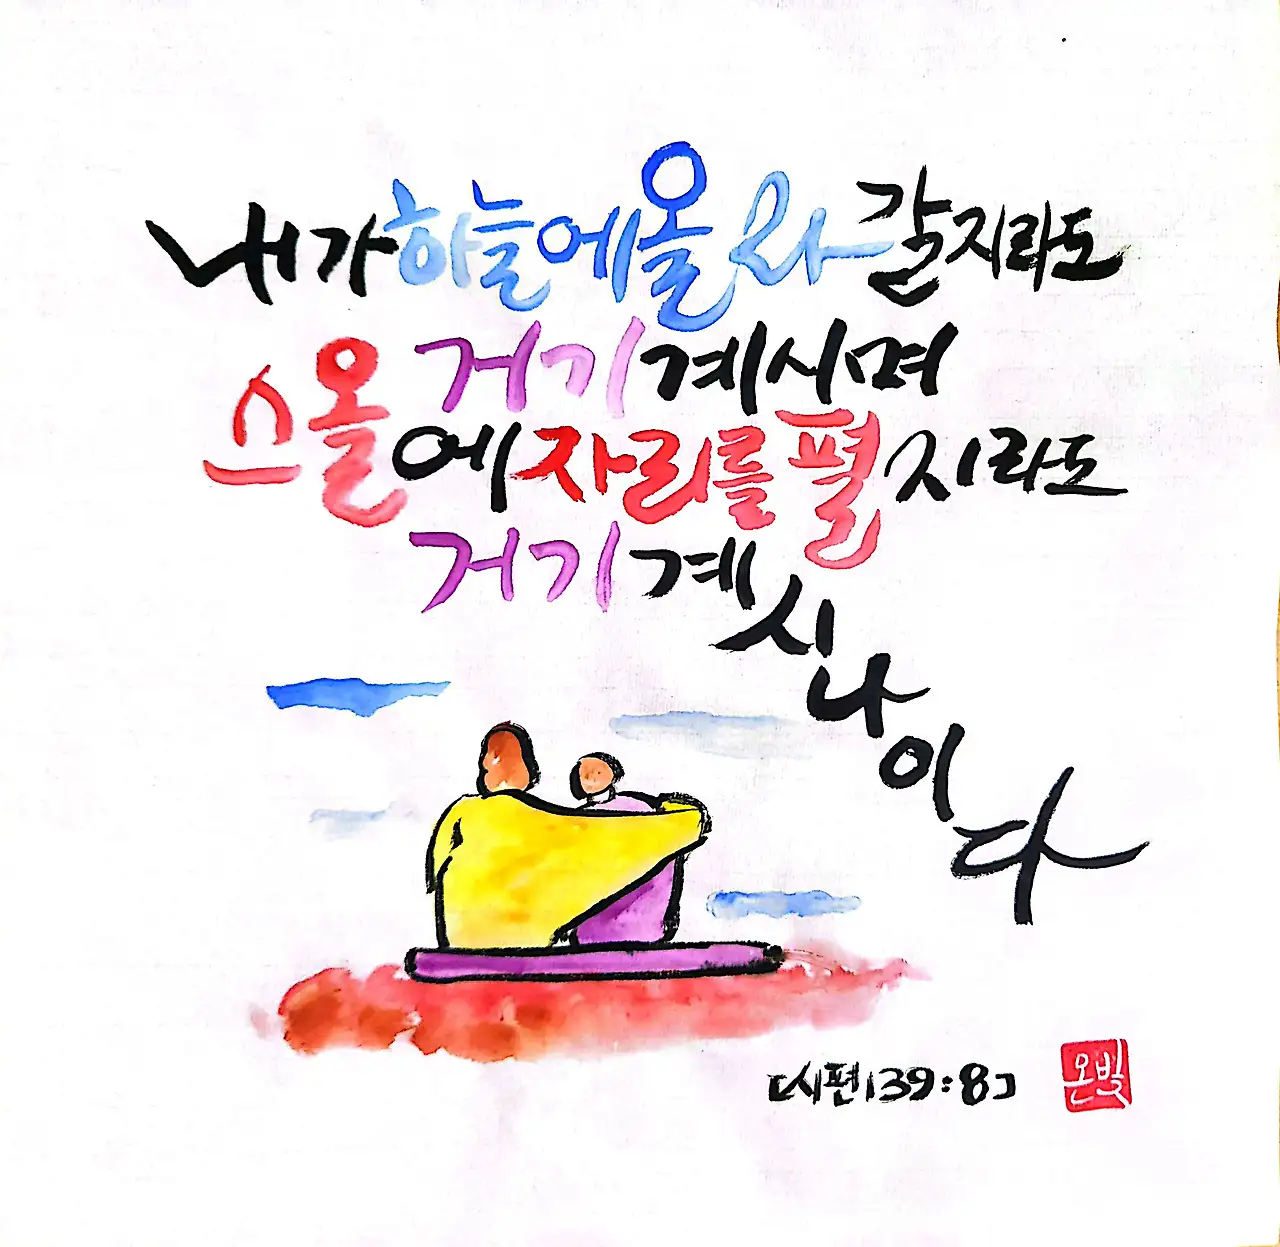 내가 하늘에 올와 갈지라도
거기 계시며
스올에 자리를 펼지라도
거기 계시나이다
[시편139:8]
온빛